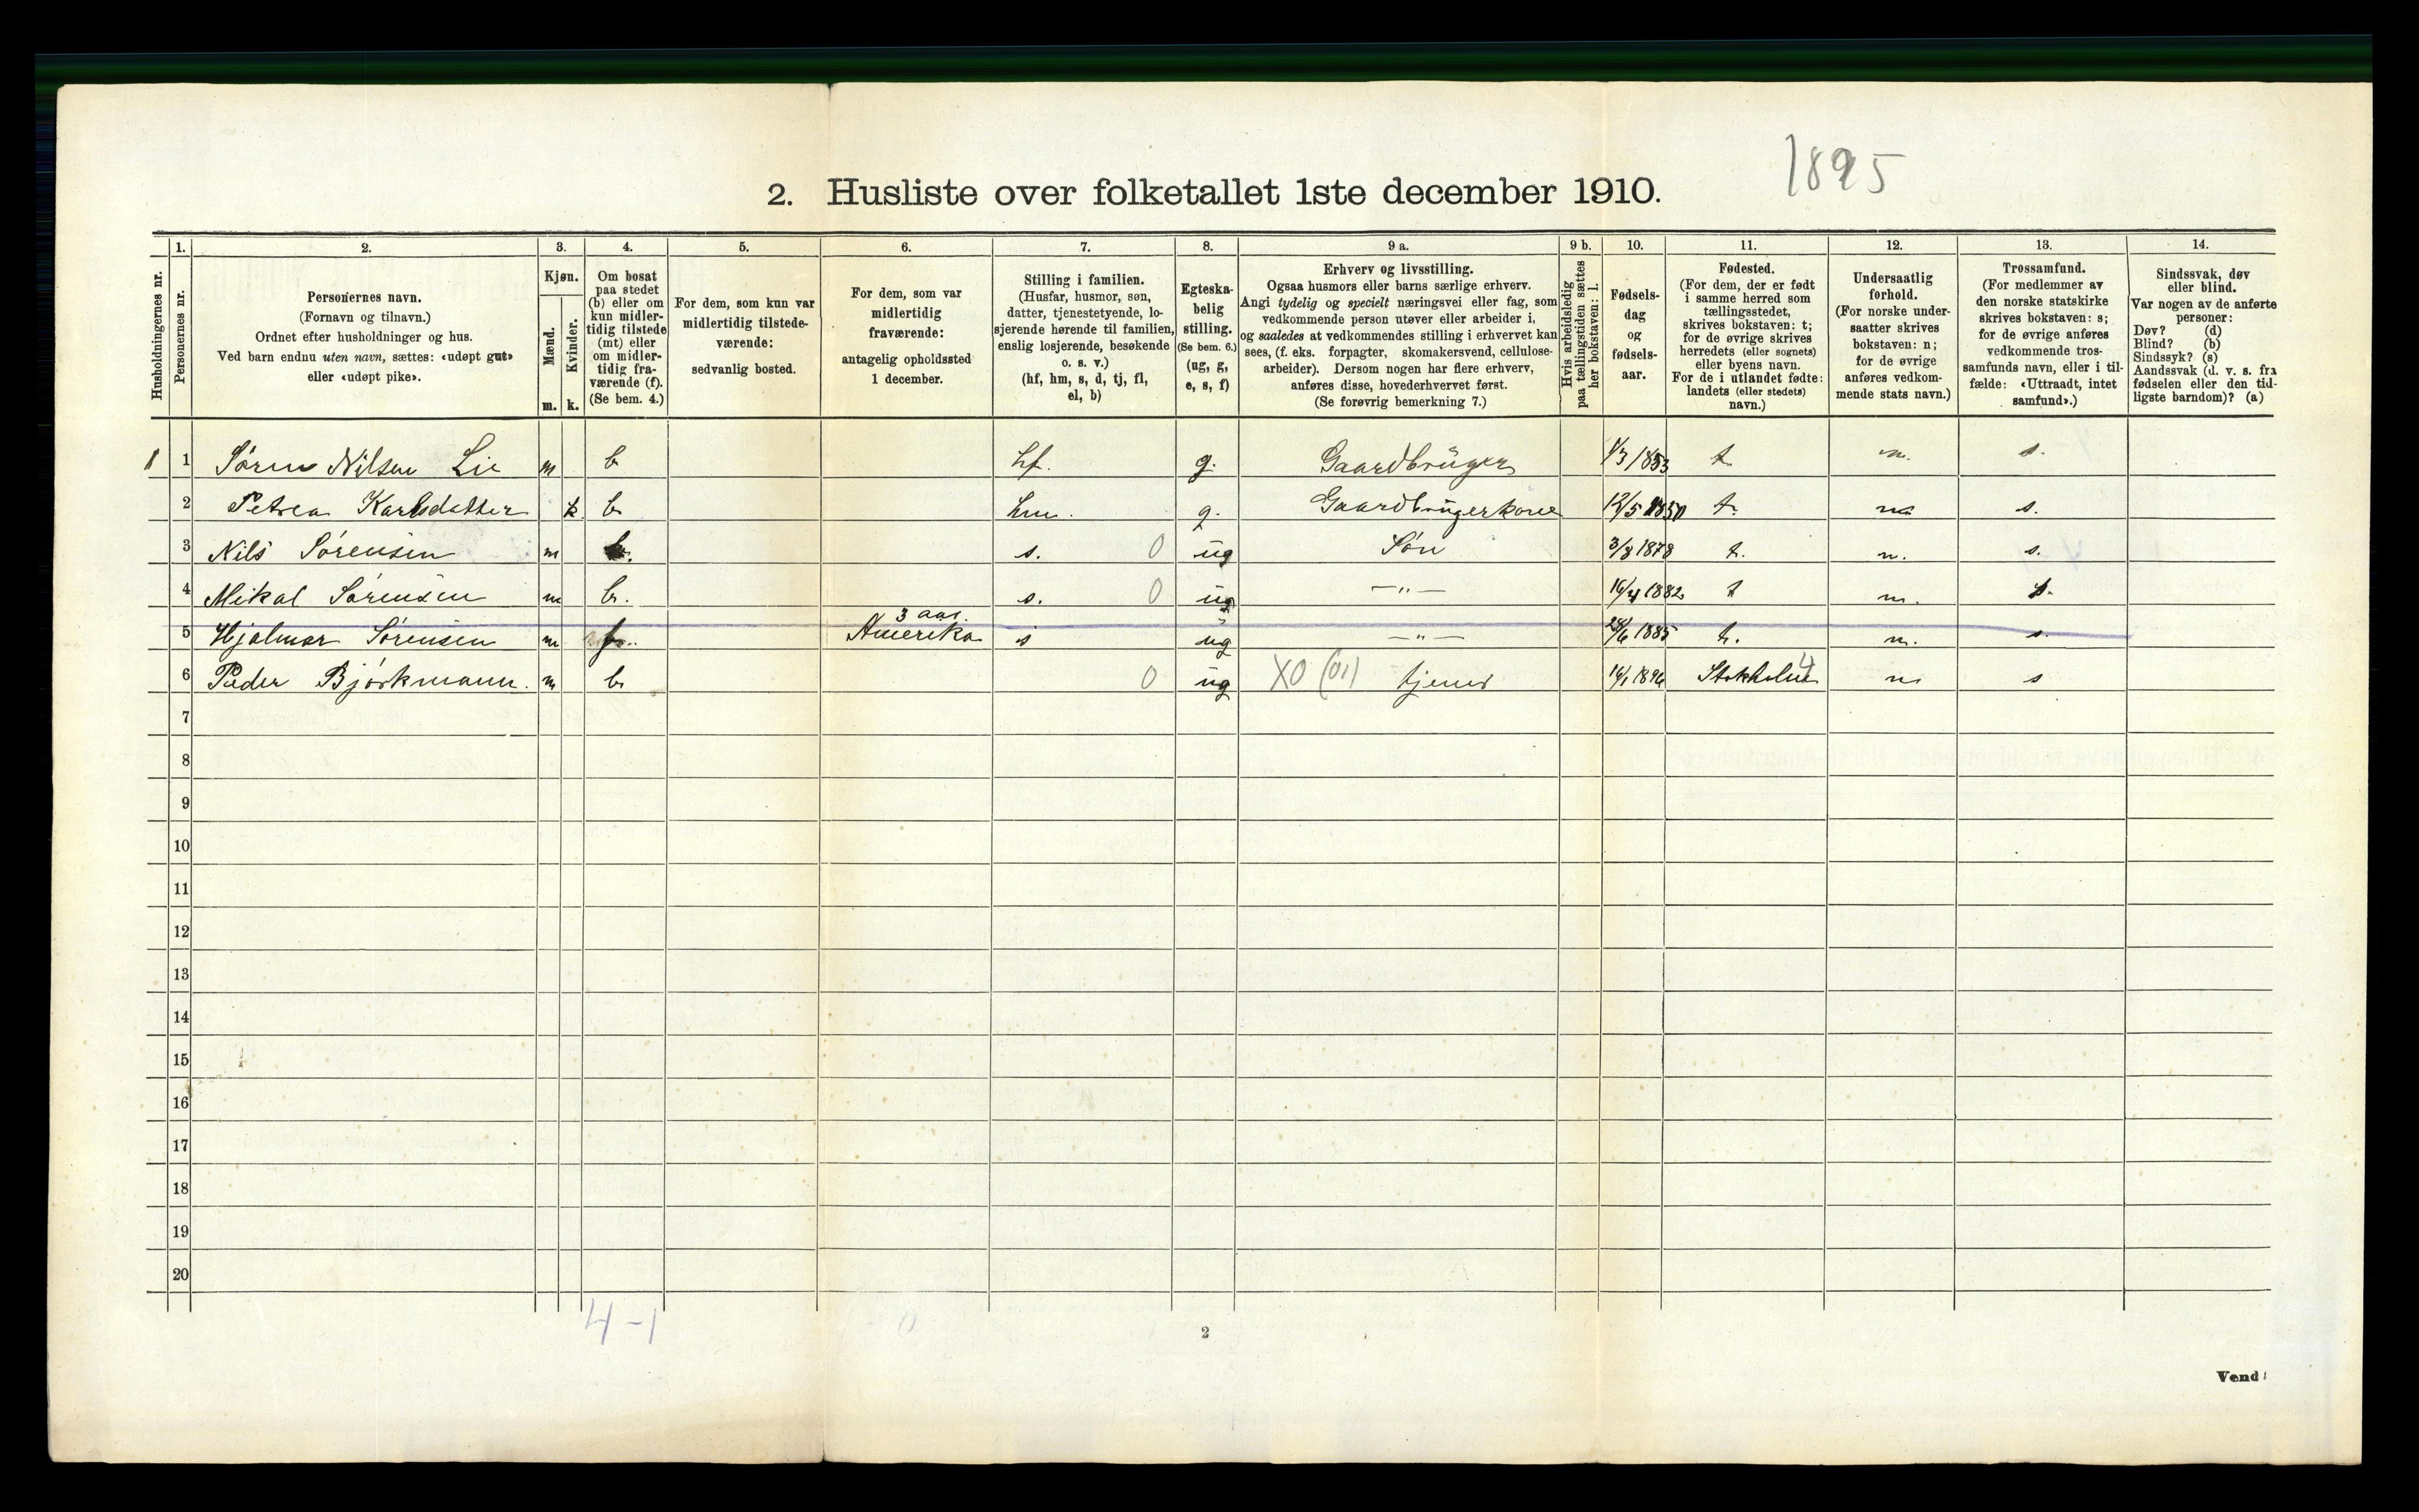 1895
2. Husliste over folketallet 1ste december 1910.
Husholdningernes nr.
1. Personernes nr.
2. Personernes navn.
(Fornavn og tilnavn.)
Ordnet efter husholdninger og hus.
Ved barn endnu uten navn, sættes: «udøpt gut»
eller «udøpt pike».
3. Kjøn.
Mænd. m.
Kvinder. k.
4. Om bosat
paa stedet
(b) eller om
kun midler-
tidig tilstede
(mt) eller
om midler-
tidig fra-
værende (f).
(Se bem. 4.)
5. For dem, som kun var
midlertidig tilstede-
værende:
sedvanlig bosted.
6. For dem, som var
midlertidig
fraværende:
antagelig opholdssted
1 december.
7. Stilling i familien.
(Husfar, husmor, søn,
datter, tjenestetyende, lo-
sjerende hørende til familien,
enslig losjerende, besøkende
o. s. v.)
(hf, hm, s, d, tj, fl,
el, b)
8. Egteska-
belig
stilling.
(Se bem. 6.)
(ug, g,
e, s, f)
9 a. Erhverv og livsstilling.
Ogsaa husmors eller barns særlige erhverv.
Angi tydelig og specielt næringsvei eller fag, som
vedkommende person utøver eller arbeider i,
og saaledes at vedkommendes stilling i erhvervet kan
sees, (f. eks. forpagter, skomakersvend, cellulose-
arbeider). Dersom nogen har flere erhverv,
anføres disse, hovederhvervet først.
(Se forøvrig bemerkning 7.)
9 b. Hvis arbeidsledig
paa tællingstiden sættes
her bokstaven: l.
10. Fødsels-
dag
og
fødsels-
aar.
11. Fødested.
(For dem, der er født
i samme herred som
tællingsstedet,
skrives bokstaven: t;
for de øvrige skrives
herredets (eller sognets)
eller byens navn.
For de i utlandet fødte:
landets (eller stedets)
navn.)
12. Undersaatlig
forhold.
(For norske under-
saatter skrives
bokstaven: n;
for de øvrige
anføres vedkom-
mende stats navn.)
13. Trossamfund.
(For medlemmer av
den norske statskirke
skrives bokstaven: s;
for de øvrige anføres
vedkommende tros-
samfunds navn, eller i til-
fælde: «Uttraadt, intet
samfund».)
14. Sindssvak, døv
eller blind.
Var nogen av de anførte
personer:
Døv? (d)
Blind? (b)
Sindssyk? (s)
Aandssvak (d. v. s. fra
fødselen eller den tid-
ligste barndom)? (a)
1 1 Sören Nilsen Lie m b hf. g. Gaardbrüger 1/3 1853 t n. s.
2 Petrea Karlsdatter k b hm. g. Gaardbrügerkone 12/5 1850 t. n s.
3 Nils Sörensen m b. s. 0 ug Sön 3/8 1878 t. n. s.
4 Mikal Sörensen m b. s. 0 ug —"— 16/4 1882 t n. s.
5 Hjalmar Sörensen m f. 3 aar. Amerika s ug —"— 28/6 1885 t. n. s.
6 Peder Björkmann. m b 0 ug XO (01) tjener 14/1 1896 Stokholm 4 n s
7
8
9
10
11
12
13
14
15
16
17
18
19
20
4-1
2
Vend!